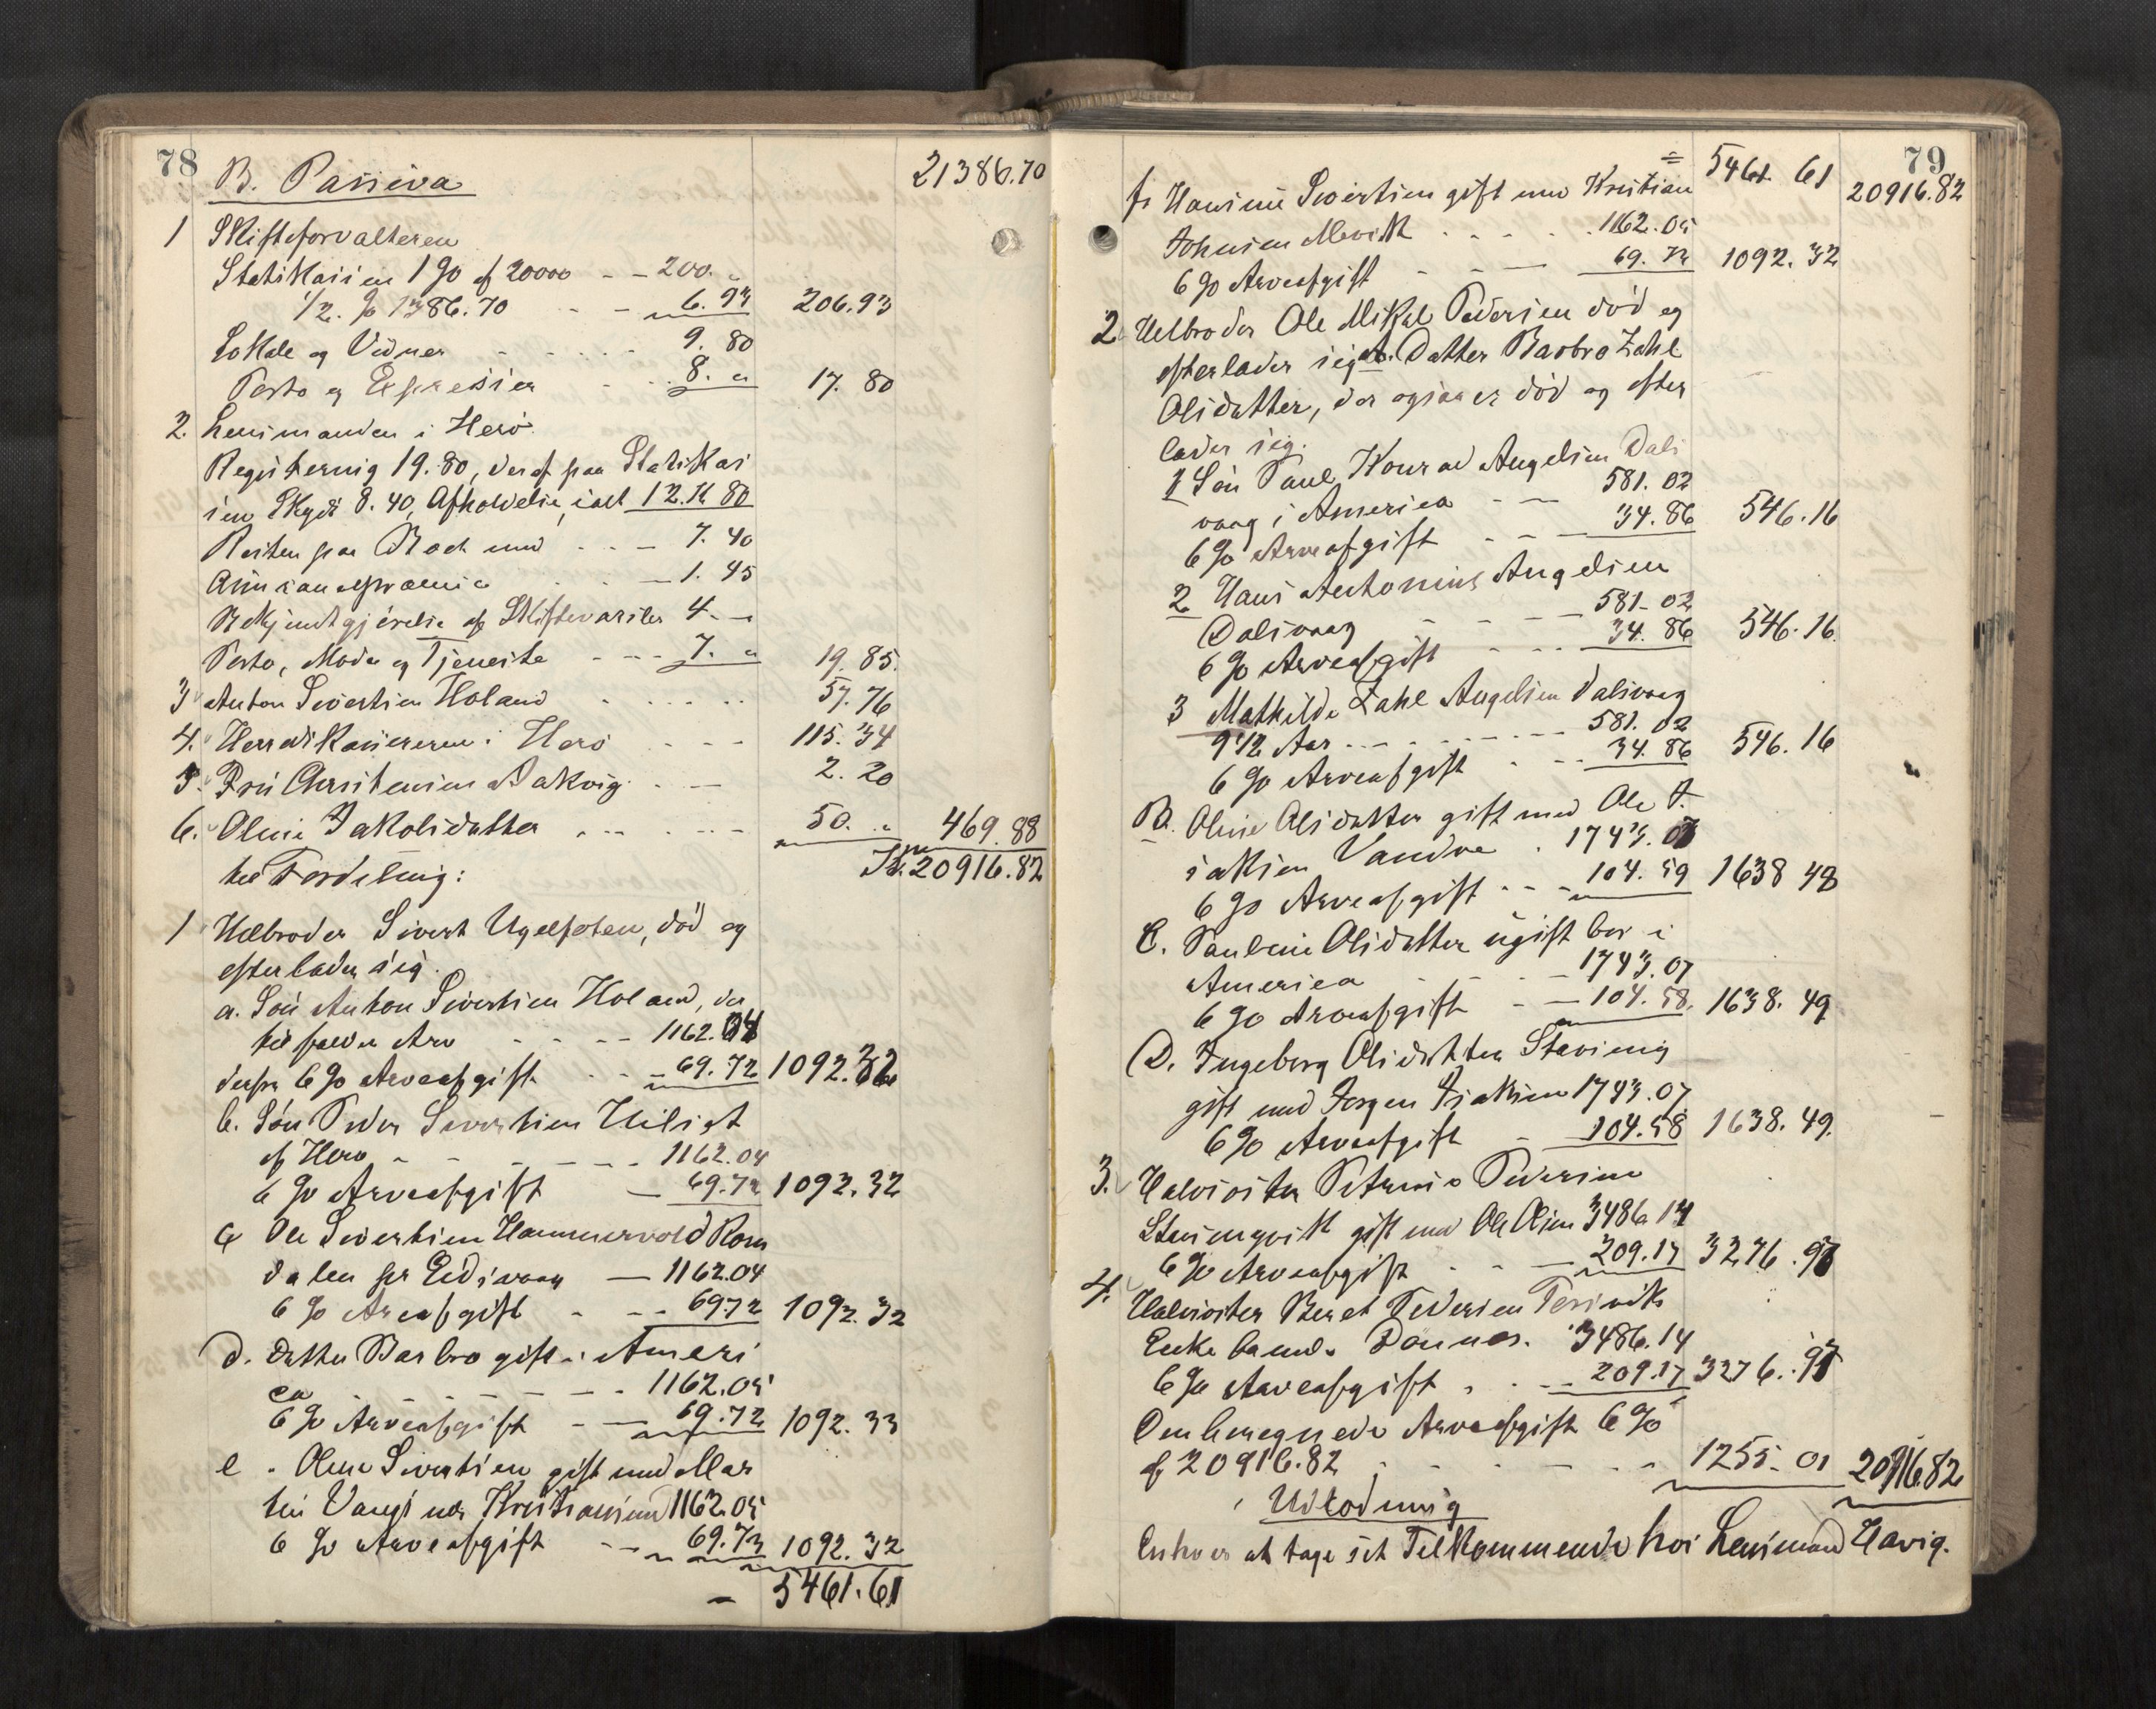 78
B. Passiva 21386.70
1 Skifteforvalteren
Statskassen 1 % af 20000 - - 200. "
1/2 % 1386.70 - - 6.93 206.93
Lokale og Vidner - - - 9.80
Porto og Expresser - - 8. " 17.80
2. Lensmanden i Herø
Registering 19.80, deraf paa Statskas
sen Skyds 8.40, Afholdelse, ialt 12.K 80
Resten paa Boet med - - 7.40
- 1.45
Bekjendtgjørelse af Skiftevarsler 4. -
Porto, Møde og Tjeneste - - - 7. " 19.85.
3 Anton Sivertsen Holand - - - 57.76
4. Herredskassereren i Herø - - - 115.34
5. Fru Christensen Bakvig - - 2.20
6. Oline Jakobsdatter - - - 50. " 469.88
til Fordeling: Kr. 20916.82
1 Helbroder Sivert Ugelfoten, død og
efterlader sig.
a. Søn Anton Sivertsen Holand, der
tilfalder Arv - - - 1162.04
derfra 6 % Arveafgift - - 69.72 1092.32
b. Søn Peder Sivertsen
af Herø - - - 1162.04
6 % Arveafgift - 69.72 1092.32
c Ole Sivertsen Hammervold Rom
dalen pr Eidsvaag - 1162.04
6 % Areafgift - - - 69.72 1092.32
d. Datter Barbro gift i Ameri
ca - - - 1162.05
6 % Arveafgift - - 69.72 1092.33
e . Oline Sivertsen gift med Mar
tin Vangs Kristiansund 1162.05
6 % Arveafgift - - 69.73 1092.32
- 5461.61
79
= 5461.61 20916.82
f. Hansine Sivertsen gift med Kristian
Johnsen Mevik - - - 1162.05
6 % Arveafgift - - 69.73 1092.32
2. Helbroder Ole Mikal Pedersen død og
efterlader sig A. Datter Barbro Zahl
Olsdatter, der ogsaa er død og efter
lader sig.
1 Søn Paul Konrad Angelsen Dals
vaag i America - - 581.02
6 % Arveafgift - - - 34.86 546.16
2 Hans Antonius Angelsen
Dalsvaag - - - 581-02
6 % Arveafgift - - - 34.86 546.16.
3 Mathilde Zahl Angelsen Dalsvaag
9 1/2 Aar - - - 581.02
6 % Arveafgift - - - 34.86 546.16
B. Oline Olsdatter gift med Ole I.
saksen Vandve . 1743.07
6 % Arveafgift - - - 104.59 1638 48
C. Pauline Olsdatter ugift bor i
America - - - 1743.07
6 % Arveafgift - - 104.58. 1638.49
D. Ingeborg Olsdatter Stavseng
gift med Jørgen Isaksen 1743.07
6 % Arveafgift - 104.58 1638.49.
3. Halvsøster Petrine Pedersen
gift med Ole Olsen 3486.14
6 % Arveafgift - - - 209.17 3276.97
4. Halvsøster Beret Pedersen
Enke Dønnes. 3486.14
6 % Arveafgift - - - 209.17 3276.97
Omberegnede Arveafgift 6 %
af 20916.82 - - - 1255.01 20916.82
Udlodning
Enhver at tage sit Tilkommende hos Lensmand Havig.